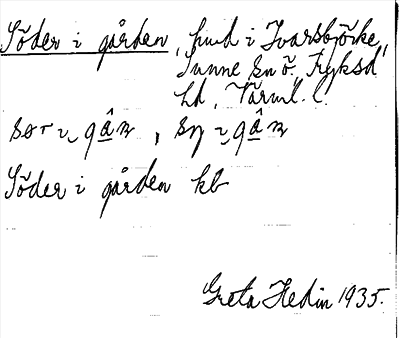 Söder i gården, hmd i Ivarsbjörke,
Sunne sn ö. Fryksd
hd, Värml. l.
Söder i gården kb
Greta Hedin 1935.